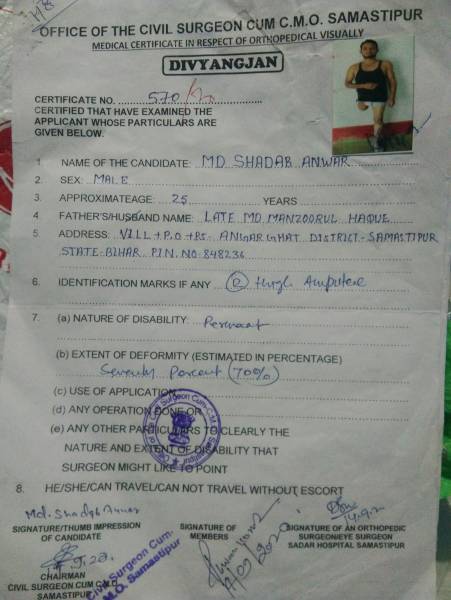 OFFICE OF THE CIVIL SURGEON CUM C.M.O. SAMASTIPUR
MEDICAL CERTIFICATE IN RESPECT OF ORTHOPEDICAL VISUALLY
DIVYANGJAN
CERTIFICATE NO. 570
CERTIFIED THAT HAVE EXAMINED THE
APPLICANT WHOSE PARTICULARS ARE
GIVEN BELOW.
1 NAME OF THE CANDIDATE: MD SHADAB ANWAR
2. SEX: MALE
3. APPROXIMATEAGE: 25 YEARS
4 FATHER'S/HUSBAND NAME: LATE MD. MANZOORUL HAQUE
5. ADDRESS: VILL+P.O+P.S- ANGARGHAT DISTRICT-SAMASTIPUR
STATE-BIHAR PIN.NO-848236
6. IDENTIFICATION MARKS IF ANY (R) thigh Amputee
7. (a) NATURE OF DISABILITY: Permaat
(b) EXTENT OF DEFORMITY (ESTIMATED IN PERCENTAGE)
Seventy Percent (70%)
(c) USE OF APPLICATION
(d) ANY OPERATION DONE OR
(e) ANY OTHER PARTICULARS TO CLEARLY THE
NATURE AND EXTENT OF DISABILITY THAT
SURGEON MIGHT LIKE TO POINT
8. HE/SHE/CAN TRAVEL/CAN NOT TRAVEL WITHOUT ESCORT
Md. Shadab Anwar
SIGNATURE/THUMB IMPRESSION
OF CANDIDATE
SIGNATURE OF
MEMBERS
SIGNATURE OF AN ORTHOPEDIC
SURGEON/EYE SURGEON
SADAR HOSPITAL SAMASTIPUR
CHAIRMAN
CIVIL SURGEON CUM C.M.O
SAMASTIPUR
Civil Surgeon Cum-
C.M.O. Samastipur